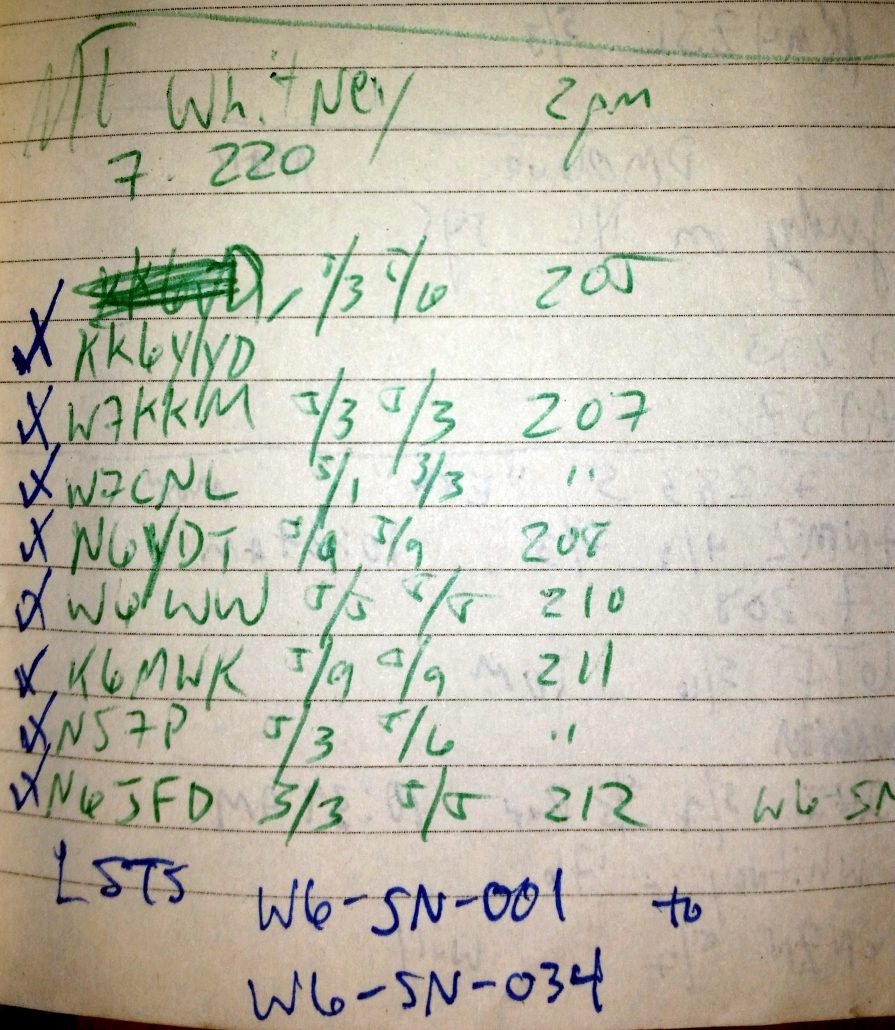 Mt Whitney 2pm
7.220
5/3 5/6 205
KK6YYD
W7KKM 5/3 5/3 207
W7CNL 5/1 3/3 "
N6YDT 5/9 5/9 208
W6WW 5/5 5/5 210
K6MWK 5/9 5/9 211
NS7P 5/3 5/6 "
N6JFD 3/3 5/5 212 W6-SN
W6-SN-001 to
W6-SN-034